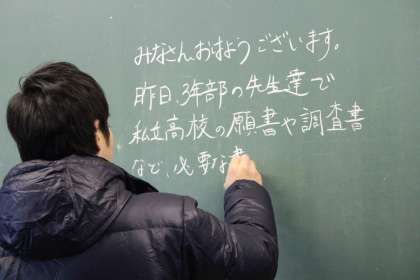 みなさん、おはようございます。
昨日、3年部の先生達で
私立高校の願書や調査書
など、必要な書